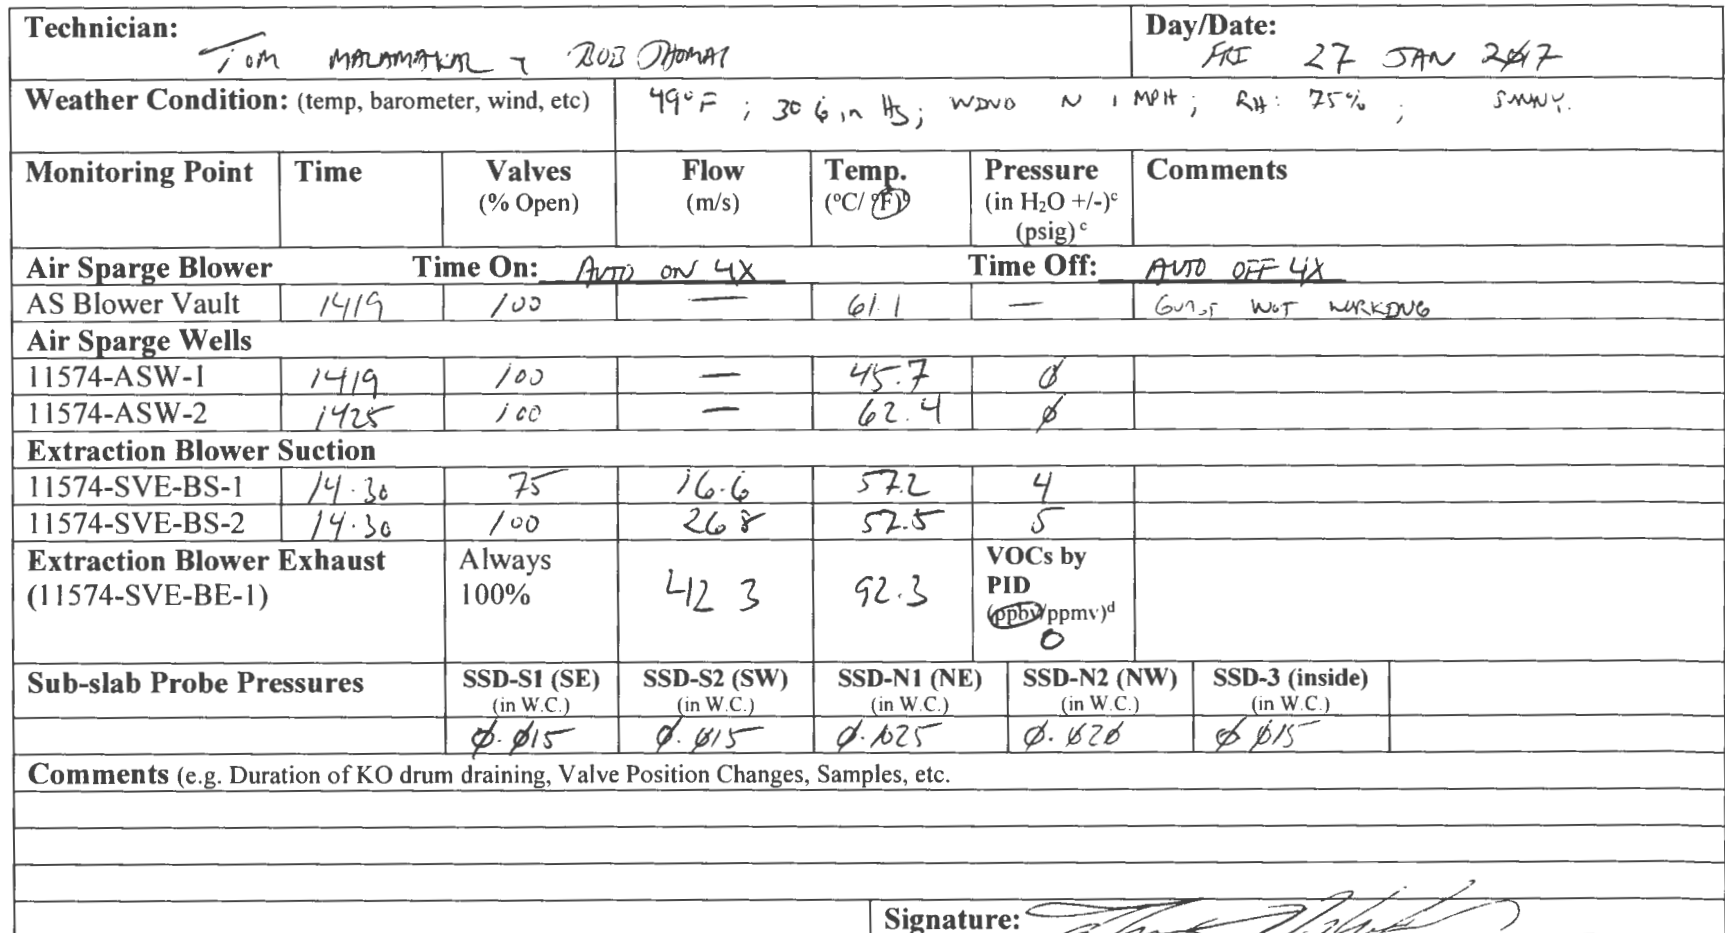 Technician: Day/Date:
TOM & BOB THOMAS FRI 27 JAN 2017
Weather Condition: (temp, barometer, wind, etc) 49°F ; 30 6 in Hg; WIND N 1 MPH; RH: 75% ; SUNNY.
Monitoring Point Time Valves Flow Temp. Pressure Comments
(% Open) (m/s) (°C/ °F)b (in H2O +/-)c
(psig) c
Air Sparge Blower Time On: AUTO ON 4X Time Off: AUTO OFF 4X
AS Blower Vault 1419 100 — 61.1 — NOT WORKING
Air Sparge Wells
11574-ASW-1 1419 100 — 45.7 0
11574-ASW-2 1425 100 — 62.4 0
Extraction Blower Suction
11574-SVE-BS-1 14.30 75 16.6 57.2 4
11574-SVE-BS-2 14.30 100 26 8 52.5 5
Extraction Blower Exhaust Always VOCs by
(11574-SVE-BE-1) 100% 42 3 92.3 PID
(ppbv/ppmv)d
0
Sub-slab Probe Pressures SSD-S1 (SE) SSD-S2 (SW) SSD-N1 (NE) SSD-N2 (NW) SSD-3 (inside)
(in W.C.) (in W.C.) (in W.C.) (in W.C.) (in W.C.)
0.015 0.015 0.025 0.020 0 015
Comments (e.g. Duration of KO drum draining, Valve Position Changes, Samples, etc.
Signature: